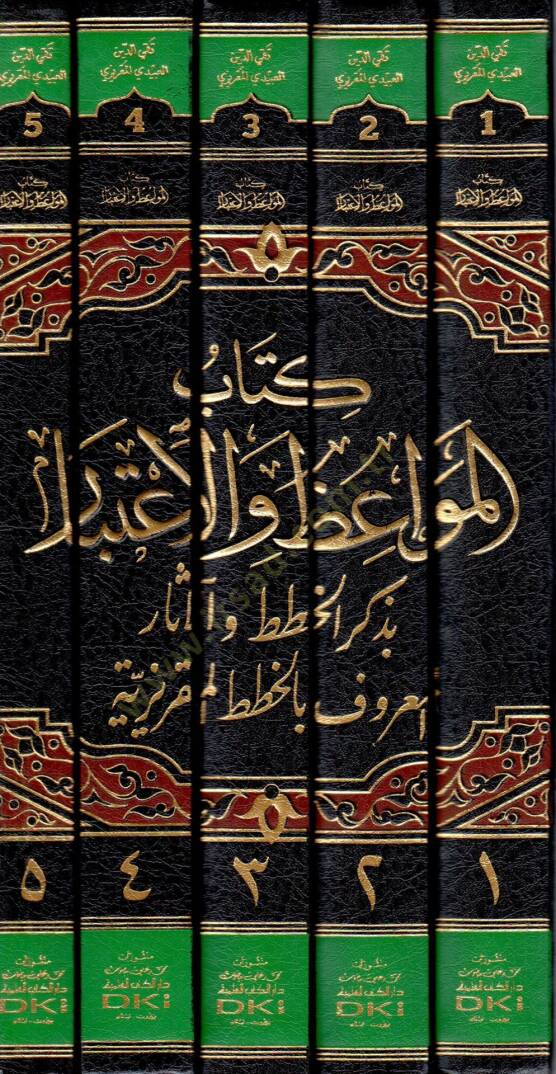 تقي الدين
العبيدي المقريزي
1
كتاب
المواعظ والاعتبار
تقي الدين
العبيدي المقريزي
2
كتاب
المواعظ والاعتبار
تقي الدين
العبيدي المقريزي
3
كتاب
المواعظ والاعتبار
تقي الدين
العبيدي المقريزي
4
كتاب
المواعظ والاعتبار
تقي الدين
العبيدي المقريزي
5
كتاب
المواعظ والاعتبار
كِتَابُ
المَوَاعِظِ وَالاِعْتِبَارِ
بذكر الخطط والآثار
المعروف بالخطط المقريزيّة
١
٢
٣
٤
٥
منشورات
محمد علي بيضون
دار الكتب العلمية
DKi
بيروت - لبنان
منشورات
محمد علي بيضون
دار الكتب العلمية
DKi
بيروت - لبنان
منشورات
محمد علي بيضون
دار الكتب العلمية
DKi
بيروت - لبنان
منشورات
محمد علي بيضون
دار الكتب العلمية
DKi
بيروت - لبنان
منشورات
محمد علي بيضون
دار الكتب العلمية
DKi
بيروت - لبنان